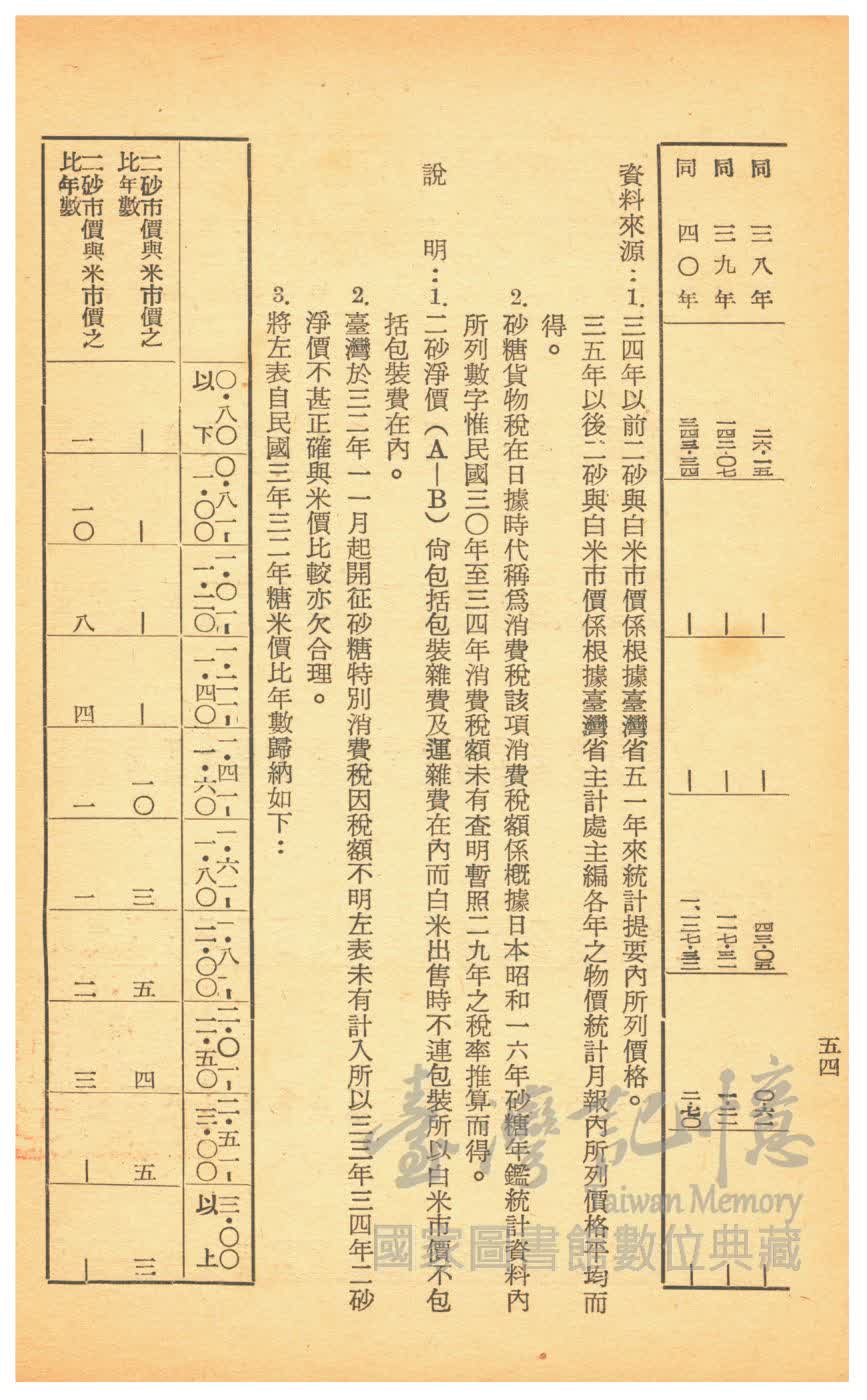 五四
同 三八年 二六・一五 ｜ ｜ 四三・〇五 〇・六一 ｜
同 三九年 一四二・〇七 ｜ ｜ 一一七・三二 一・二一 ｜
同 四〇年 三四三・三四 ｜ ｜ 一、二七・三二 二・七〇 ｜
資料來源：1.三四年以前二砂與白米市價係根據臺灣省五一年來統計提要內所列價格。
三五年以後二砂與白米市價係根據臺灣省主計處主編各年之物價統計月報內所列價格平均而
得。
2.砂糖貨物稅在日據時代稱爲消費稅該項消費稅額係概據日本昭和一六年砂糖年鑑統計資料內
所列數字惟民國三〇年至三四年消費稅額未有查明暫照二九年之稅率推算而得。
說　明：1.二砂淨價（A—B）尙包括包裝雜費及運雜費在內而白米出售時不連包裝所以白米市價不包
括包裝費在內。
2.臺灣於三二年一一月起開征砂糖特別消費稅因稅額不明左表未有計入所以三三年三四年二砂
淨價不甚正確與米價比較亦欠合理。
3.將左表自民國三年三二年糖米價比年數歸納如下：
〇・八〇以下 〇・八一-一・〇〇 一・〇一-一・二〇 一・二一-一・四〇 一・四一-一・六〇 一・六一-一・八〇 一・八一-二・〇〇 二・〇一-二・五〇 二・五一-三・〇〇 三・〇〇以上
二砂市價與米市價之
比年數 ｜ ｜ ｜ ｜ 一〇 三 五 四 五 三
二砂市價與米市價之
比年數 一 一〇 八 四 一 一 二 三 ｜ ｜
臺灣記憶
Taiwan Memory
國家圖書館數位典藏